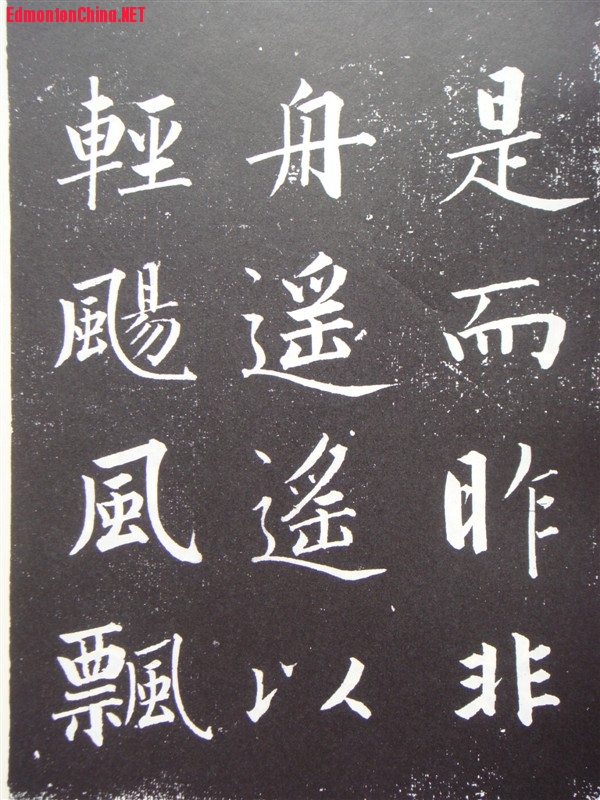 EdmontonChina.NET
是而昨非
舟遥遥以
輕颺風飄